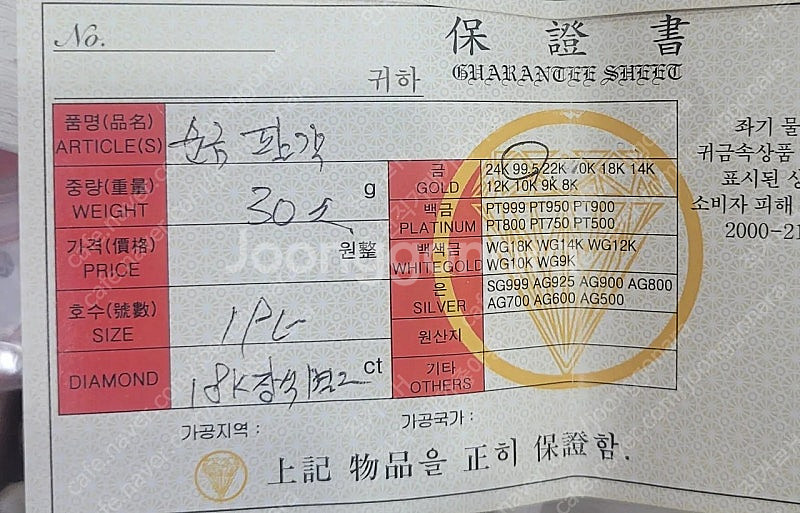 No.
保 證 書
귀하
GUARANTEE SHEET
품명(品名)
ARTICLE(S)
순금 팔찌
중량(重量)
WEIGHT
30 g
가격(價格)
PRICE
원整
호수(號數)
SIZE
DIAMOND
18K장식 ct
금
GOLD
24K 99.5 22K 20K 18K 14K
12K 10K 9K 8K
백금
PLATINUM
PT999 PT950 PT900
PT800 PT750 PT500
백색금
WHITEGOLD
WG18K WG14K WG12K
WG10K WG9K
은
SILVER
SG999 AG925 AG900 AG800
AG700 AG600 AG500
원산지
기타
OTHERS
좌기 물
귀금속상품
표시된 상
소비자 피해
2000-21
가공지역 :
가공국가 :
上記 物品을 正히 保證함.
Joongonara
cafe.naver.com/joonggonara